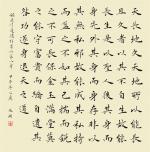 天長地久天地所以能長
且久者以其不自生故能
長生是以聖人後其身而
身先外其身而身存非以
其無私邪故能成其私持
而盈之不如其已揣而銳
之不可長保金玉滿堂莫
之能守富貴而驕自遺其
咎功遂身退天之道